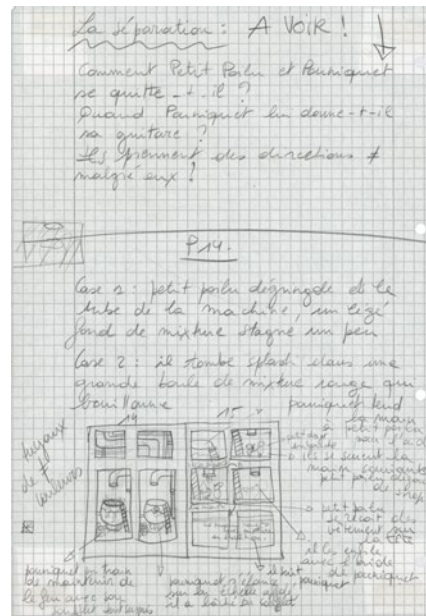 La séparation : A VOIR !
Comment Petit Poilu et Paniquet
se quitte-t-il ?
Quand Paniquet lui donne-t-il
sa guitare ?
Ils prennent des directions ≠
malgré eux !
P 14.
Case 1 : petit poilu dégringole ds le
tube de la machine, un léger
fond de mixture stagne un peu
Case 2 : il tombe splash dans une
grande boule de mixture rouge qui
bouillonne
14
15
tuyaux
de ≠
couleurs
paniquet tend
la main
à petit poilu
pour l'aider
ils se serrent la
main
petit poilu
petit poilu
reçoit des
vêtements sur
la tête
il les enfile
avec l'aide
de paniquet
paniquet en train
de maintenir le
le feu avec son
paniquet s'élance
sur son échelle
il a bâti
il suit
paniquet